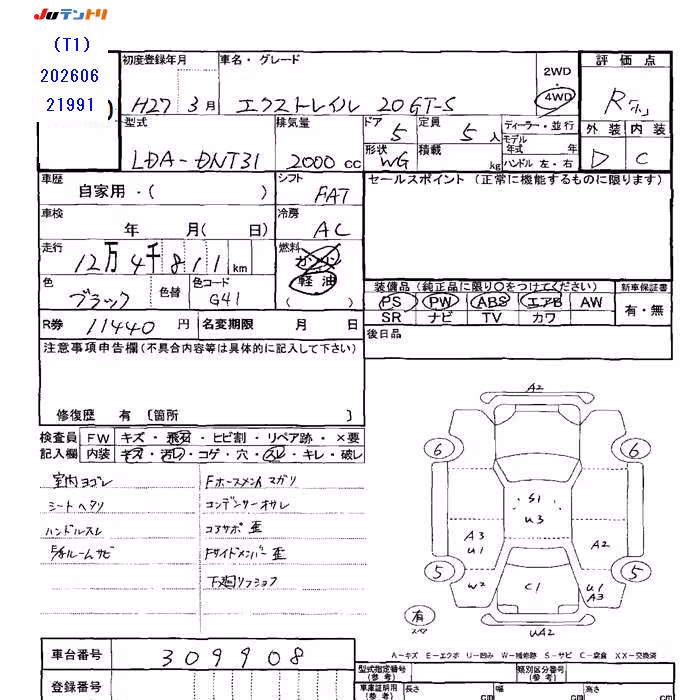 Juテントリ
(T1)
202606
21991
初度登録年月 車名・グレード 2WD ・ 4WD 評価点
H27 3月 エクストレイル 20GT-S R
外装 内装
D C
型式 排気量 ドア 5 定員 5人 ディーラー・並行
LDA-DNT31 2000cc 形状 WG 積載 kg モデル年式 年
ハンドル 左・右
車歴 シフト セールスポイント (正常に機能するものに限ります)
自家用・( ) FAT
車検 冷房
年 月( 日) AC
走行 燃料
12万4千811km ガソリン
軽油
( )
色 色替 色コード
ブラック G41
装備品 (純正品に限り○をつけてください) 新車保証書
PS PW ABS エアB AW 有・無
SR ナビ TV カワ
R券 11440円 名変期限 月 日
後日品
注意事項申告欄(不具合内容等は具体的に記入して下さい)
修復歴 有 〔箇所 〕
検査員 FW キズ・飛石・ヒビ割・リペア跡・×要
記入欄 内装 キズ・汚レ・コゲ・穴・スレ・キレ・破レ
室内ヨゴレ Fホースメント マガリ
シートヘタリ コンデンサーオサレ
ハンドルスレ コアサポ 歪
ルームサビ Fサイドメンバー 歪
下廻リ
A2
6 6
S1
U3
A3
U1
A2
5 5
W2 C1 U1
A3
有
スペア
UA2
A-キズ E-エクボ U-凹み W-補修跡 S-サビ C-腐食 XX-交換済
車台番号 309908
型式指定番号(参考) 類別区分番号(参考)
登録番号
車庫証明用(参考) 長さ cm 幅 cm 高さ cm